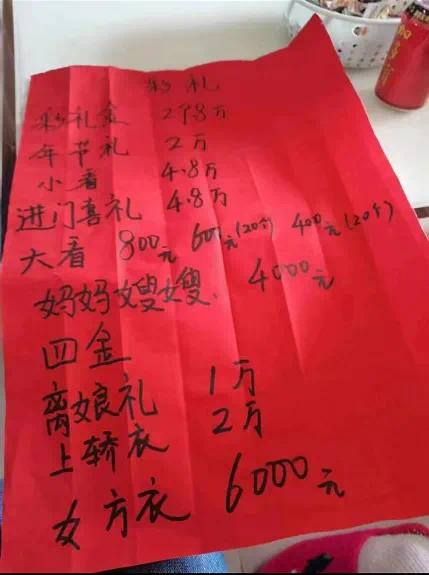 彩礼
彩礼金 298万
年节礼 2万
小看 4.8万
进门喜礼 4.8万
大看 800元 600元(20个) 400元(20个)
妈妈嫂嫂. 4000元
四金
离娘礼 1万
上轿衣 2万
女方衣 6000元